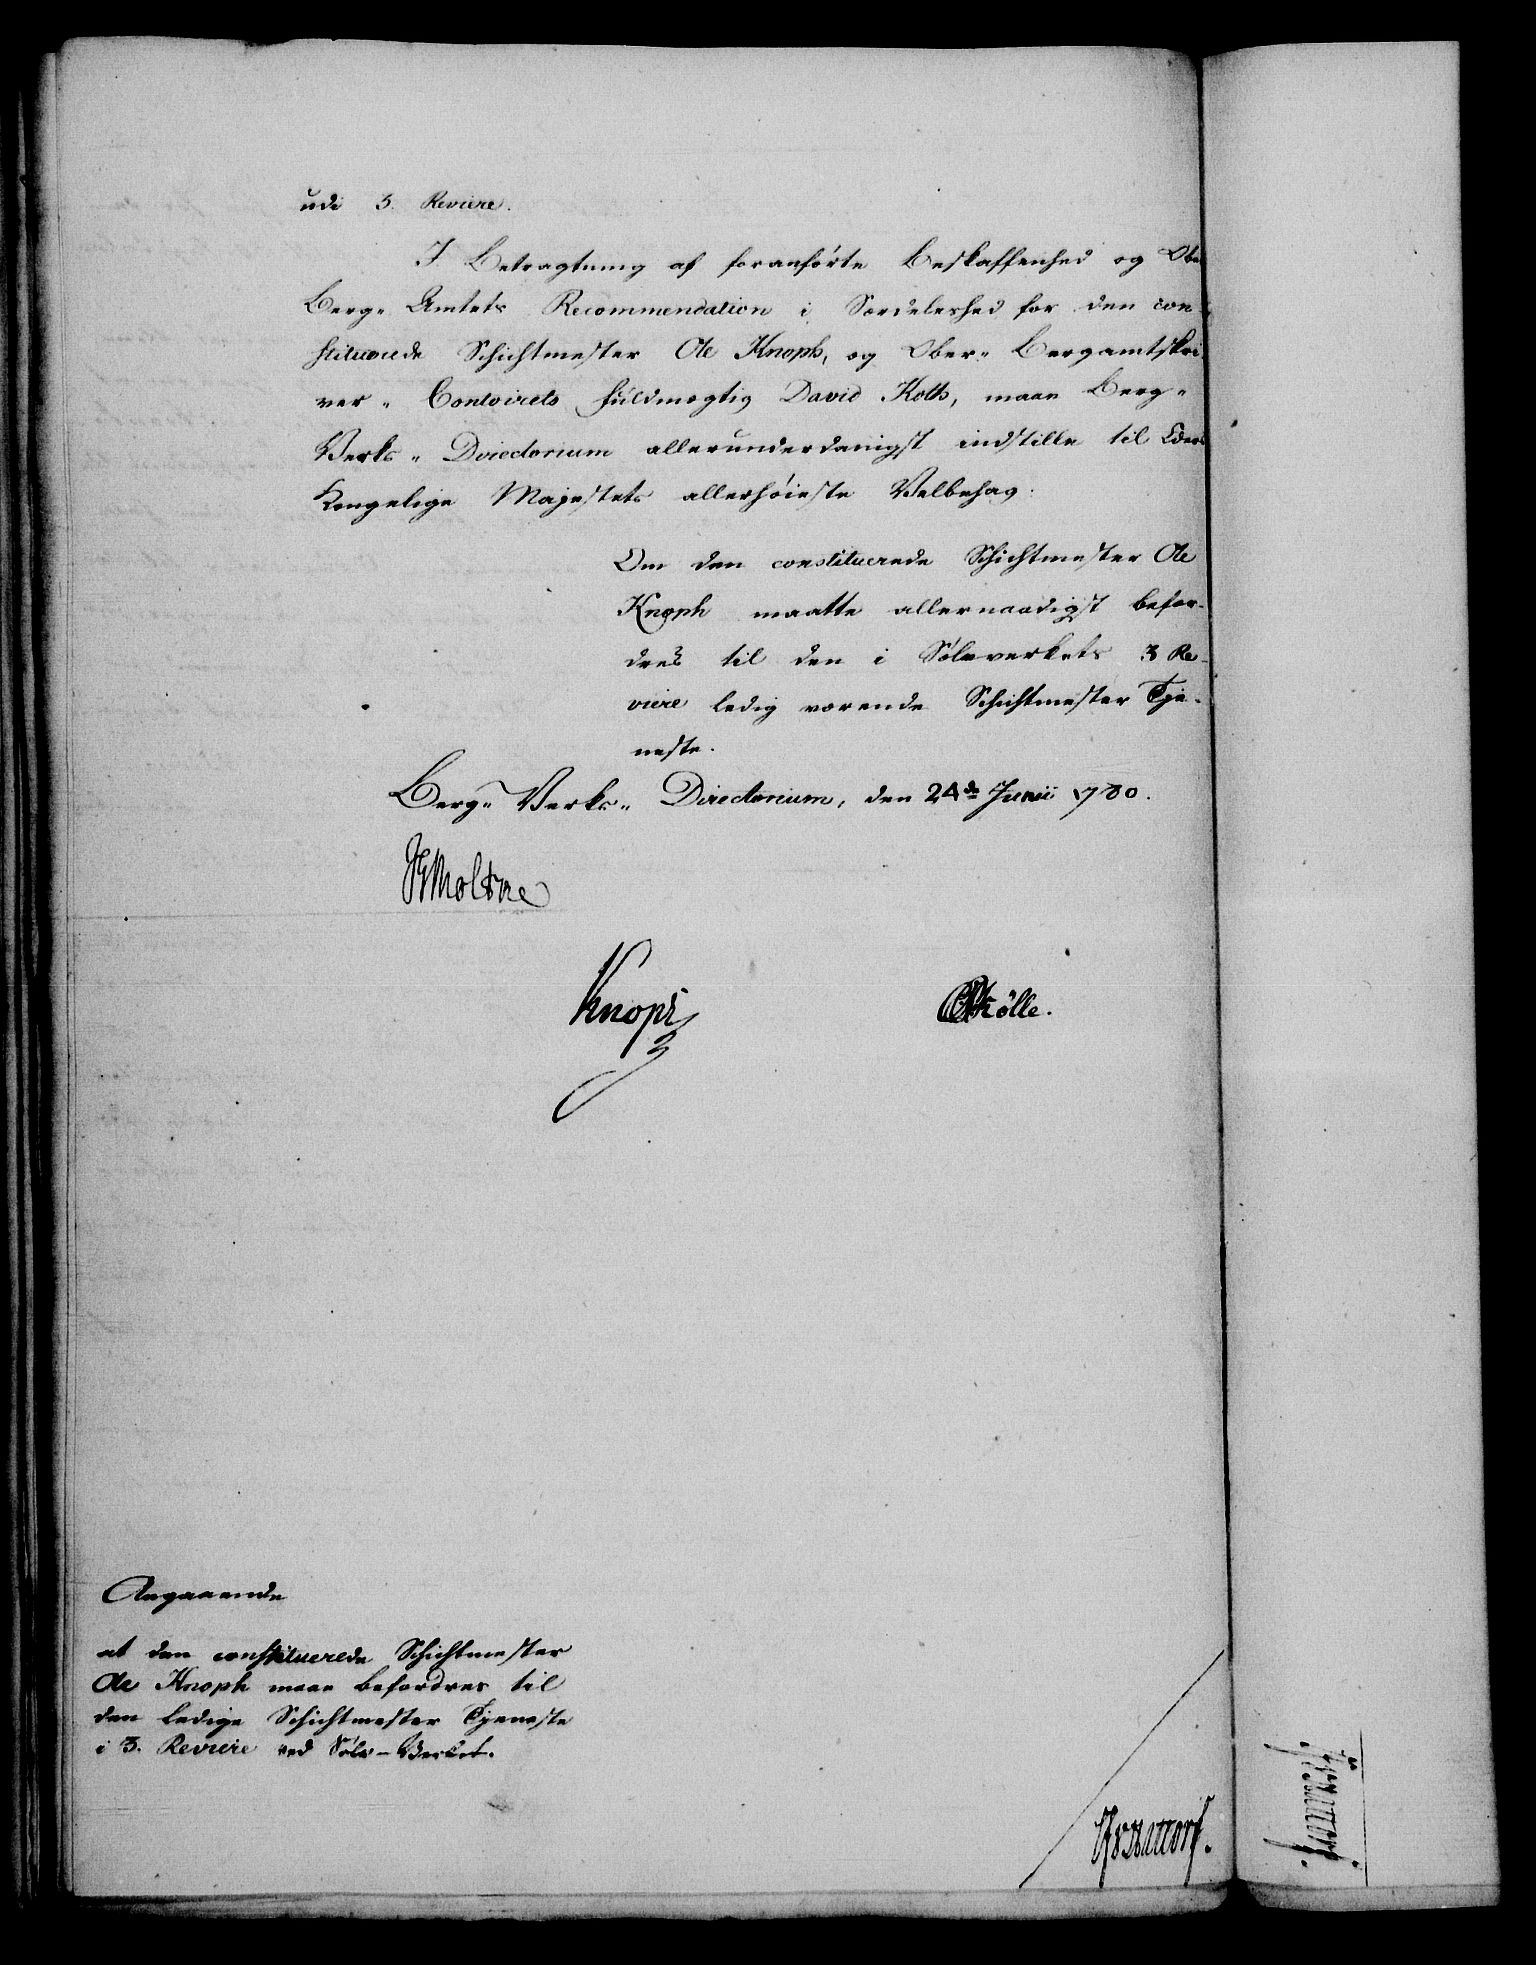 udi 3. Reviere.
I Betragtning af foranførte Beskaffenhed og Ober
Berg- Amtets Recommendation i Særdeleshed for den con-
stituerede Schichtmester Ole Knoph, og Ober- Bergamtskri
ver- Contoirets fuldmægtig David Koth, maae Berg-
Verks- Directorium allerunderdanigst indstille til Eders
Kongelige Majestets allerhøieste Velbehag:
Om den constituerede Schichtmester Ole
Knoph maatte allernaadigst befor-
dres til den i Sølvverkets 3 Re-
viere ledig værende Schichtmester Tje-
neste.
Berg- Verks- Directorium, den 24de Junii 1780.
Moltke
Knoph
Kölle.
Angaaende
at den constituerede Schichtmester
Ole Knoph maae befordres til
den ledige Schichtmester Tjeneste
i 3. Reviere ved Sølv-Verket.